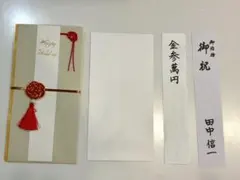 Happy
Wedding
金参萬円
御結婚
御祝
田中信一